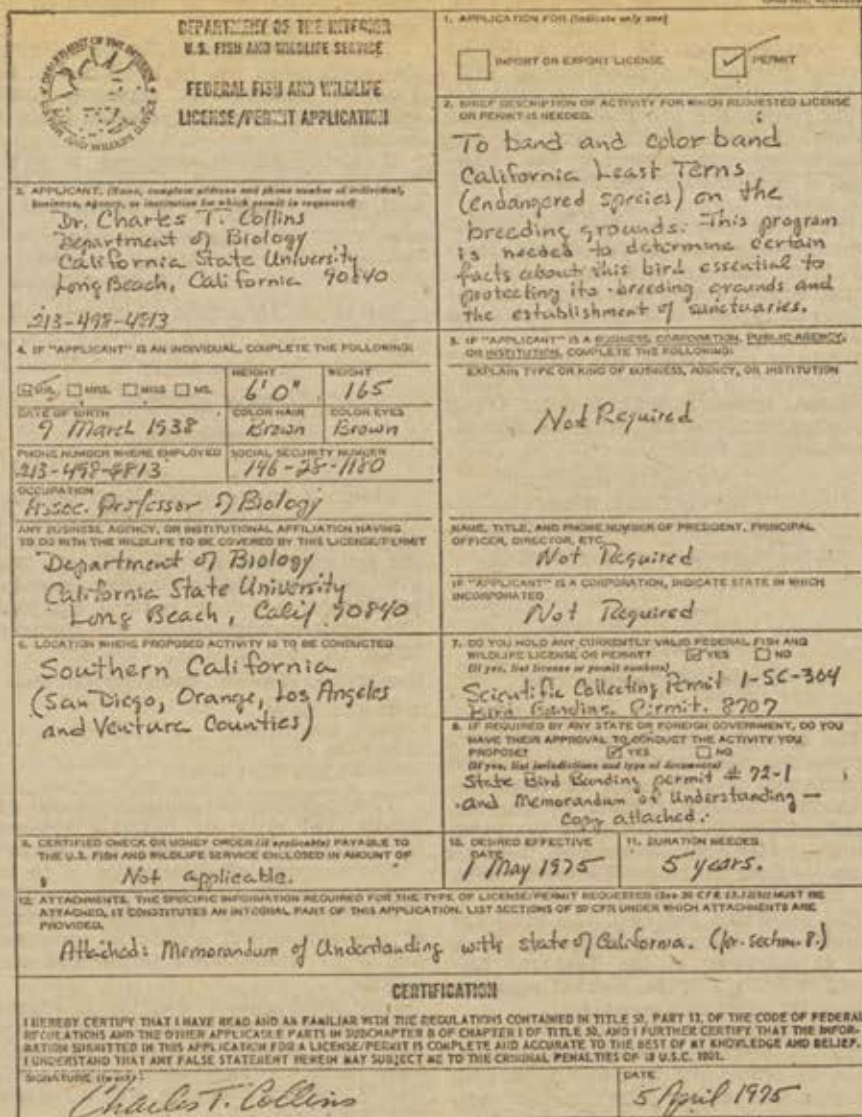 DEPARTMENT OF THE INTERIOR
U.S. FISH AND WILDLIFE SERVICE
FEDERAL FISH AND WILDLIFE
LICENSE/PERMIT APPLICATION
1. APPLICATION FOR (Indicate only one)
IMPORT OR EXPORT LICENSE
PERMIT
2. BRIEF DESCRIPTION OF ACTIVITY FOR WHICH REQUESTED LICENSE
OR PERMIT IS NEEDED.
To band and color band
California Least Terns
(endangered species) on the
breeding grounds. This program
is needed to determine certain
facts about this bird essential to
protecting its breeding grounds and
the establishment of sanctuaries.
3. APPLICANT. (Name, complete address and phone number of individual,
business, agency, or institution for which permit is requested)
Dr. Charles T. Collins
Department of Biology
California State University
Long Beach, California 90840
213-498-4813
4. IF "APPLICANT" IS AN INDIVIDUAL, COMPLETE THE FOLLOWING:
MR. MRS. MISS MS.
HEIGHT
6'0"
WEIGHT
165
DATE OF BIRTH
9 March 1938
COLOR HAIR
Brown
COLOR EYES
Brown
PHONE NUMBER WHERE EMPLOYED
213-498-4813
SOCIAL SECURITY NUMBER
146-28-1180
OCCUPATION
Assoc. Professor of Biology
ANY BUSINESS, AGENCY, OR INSTITUTIONAL AFFILIATION HAVING
TO DO WITH THE WILDLIFE TO BE COVERED BY THIS LICENSE/PERMIT
Department of Biology
California State University
Long Beach, Calif 90840
5. IF "APPLICANT" IS A BUSINESS, CORPORATION, PUBLIC AGENCY,
OR INSTITUTION, COMPLETE THE FOLLOWING:
EXPLAIN TYPE OR KIND OF BUSINESS, AGENCY, OR INSTITUTION
Not Required
NAME, TITLE, AND PHONE NUMBER OF PRESIDENT, PRINCIPAL
OFFICER, DIRECTOR, ETC.
Not Required
IF "APPLICANT" IS A CORPORATION, INDICATE STATE IN WHICH
INCORPORATED
Not Required
6. LOCATION WHERE PROPOSED ACTIVITY IS TO BE CONDUCTED
Southern California
(San Diego, Orange, Los Angeles
and Ventura Counties)
7. DO YOU HOLD ANY CURRENTLY VALID FEDERAL FISH AND
WILDLIFE LICENSE OR PERMIT? YES NO
(If yes, list license or permit numbers)
Scientific Collecting Permit 1-SC-304
Bird Banding Permit. 8707
8. IF REQUIRED BY ANY STATE OR FOREIGN GOVERNMENT, DO YOU
HAVE THEIR APPROVAL TO CONDUCT THE ACTIVITY YOU
PROPOSE? YES NO
(If yes, list jurisdictions and type of documents)
State Bird Banding permit # 72-1
and Memorandum of Understanding —
copy attached.
9. CERTIFIED CHECK OR MONEY ORDER (if applicable) PAYABLE TO
THE U.S. FISH AND WILDLIFE SERVICE ENCLOSED IN AMOUNT OF
$ Not applicable.
10. DESIRED EFFECTIVE
DATE
1 May 1975
11. DURATION NEEDED
5 years.
12. ATTACHMENTS. THE SPECIFIC INFORMATION REQUIRED FOR THE TYPE OF LICENSE/PERMIT REQUESTED (See 50 CFR 13.12(b)) MUST BE
ATTACHED, IT CONSTITUTES AN INTEGRAL PART OF THIS APPLICATION. LIST SECTIONS OF 50 CFR UNDER WHICH ATTACHMENTS ARE
PROVIDED.
Attached: Memorandum of Understanding with state of California. (for section 8.)
CERTIFICATION
I HEREBY CERTIFY THAT I HAVE READ AND AM FAMILIAR WITH THE REGULATIONS CONTAINED IN TITLE 50, PART 13, OF THE CODE OF FEDERAL
REGULATIONS AND THE OTHER APPLICABLE PARTS IN SUBCHAPTER B OF CHAPTER I OF TITLE 50, AND I FURTHER CERTIFY THAT THE INFOR-
MATION SUBMITTED IN THIS APPLICATION FOR A LICENSE/PERMIT IS COMPLETE AND ACCURATE TO THE BEST OF MY KNOWLEDGE AND BELIEF.
I UNDERSTAND THAT ANY FALSE STATEMENT HEREIN MAY SUBJECT ME TO THE CRIMINAL PENALTIES OF 18 U.S.C. 1001.
SIGNATURE (In ink)
Charles T. Collins
DATE
5 April 1975